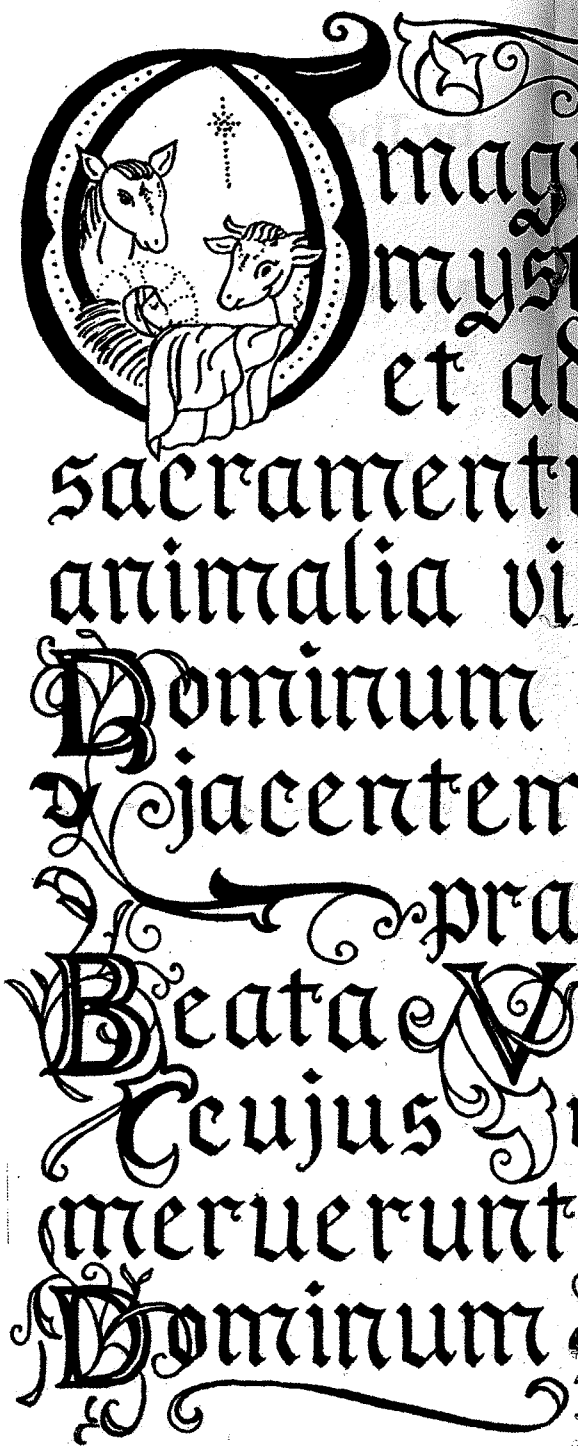 O mag
myst
et ad
sacrament
animalia vi
Dominum
jacentem
pra
Beata V
cujus
meruerunt
Dominum